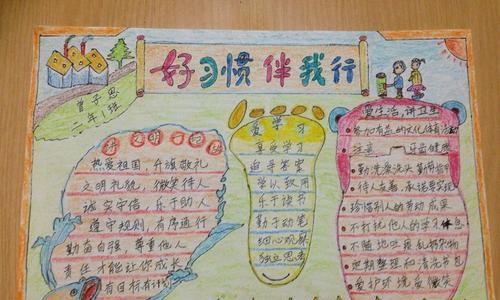 好习惯伴我行
二年1班
热爱祖国，升旗敬礼
文明礼貌，微笑待人
诚实守信，乐于助人
遵守规则，有序通行
勤奋自强 尊重他人
责任才能让你成长
有目标有计划
爱学习
喜爱学习
追寻答案
学以致用
乐于读书
勤于动笔
细心观察
独立思考
爱生活，讲卫生
参加有益的文化体育活
注意 牙齿健康
勤洗澡洗头 勤剪指甲
待人友善，承诺要实现
珍惜别人的劳动成果
不打扰他人的学习休息
不随地吐痰乱扔杂物
定期整理和清洗书包
爱护环境